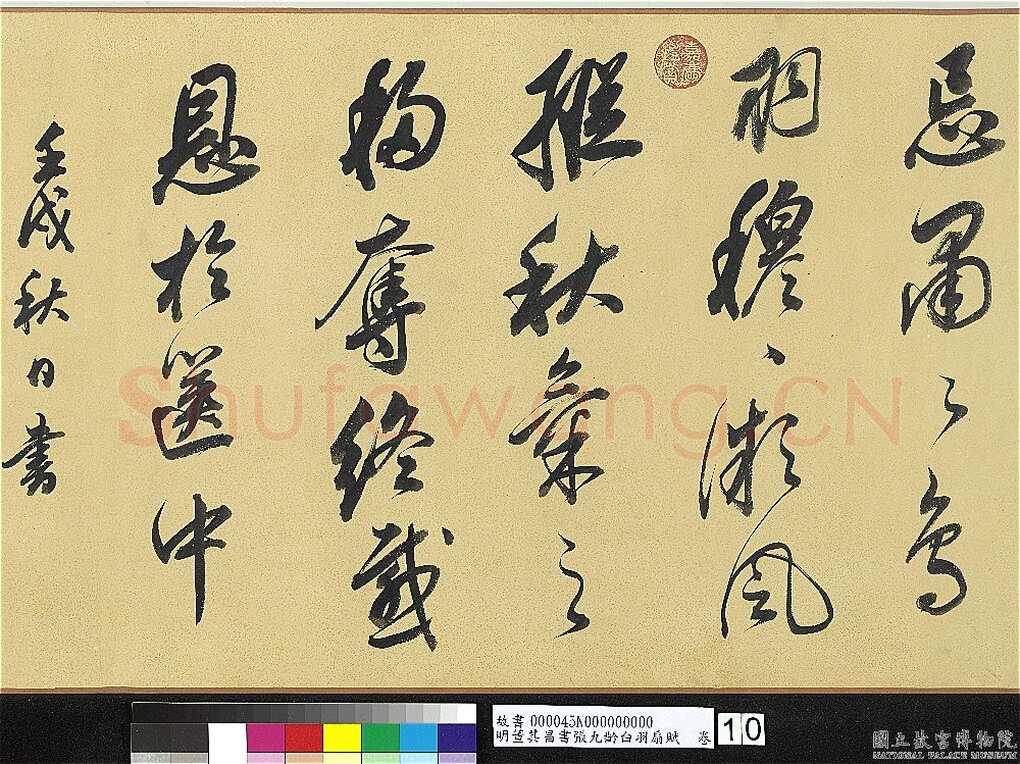 忌肅〻鳥
羽穆〻風
縱秋氣之
移奪終感
恩於篋中
壬戌秋日書
嘉慶鑑賞
Shufawang.CN
故書 000043N000000000
明董其昌書張九齡白羽扇賦 卷
10
國立故宮博物院
NATIONAL PALACE MUSEUM